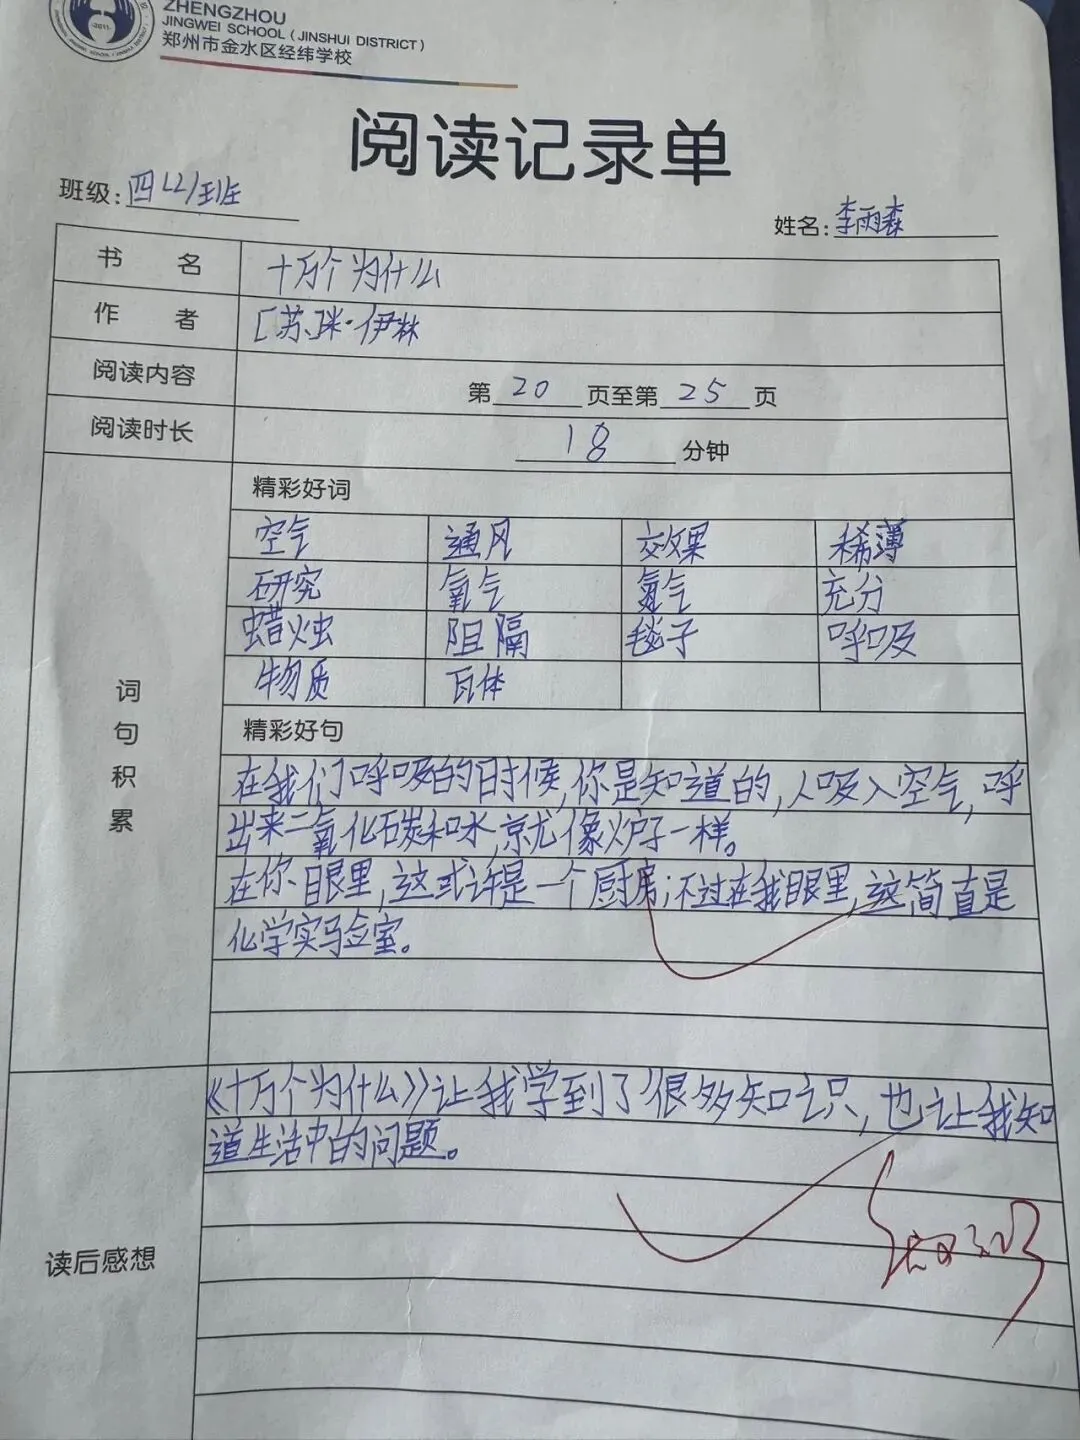 ZHENGZHOU
JINGWEI SCHOOL ( JINSHUI DISTRICT )
郑州市金水区经纬学校
·2011·
阅读记录单
班级: 四(2)班
姓名: 李雨森
书 名 十万个为什么
作 者 [苏]米·伊林
阅读内容 第 20 页至第 25 页
阅读时长 18 分钟
词句积累
精彩好词
空气 通风 效果 稀薄
研究 氧气 氮气 充分
蜡烛 阻隔 毯子 呼吸
物质 瓦体
精彩好句
在我们呼吸的时候,你是知道的,人吸入空气,呼
出来二氧化碳和水,就像炉子一样。
在你眼里,这或许是一个厨房;不过在我眼里,这简直是
化学实验室。
读后感想
《十万个为什么》让我学到了很多知识,也让我知
道生活中的问题。